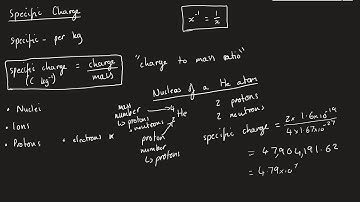 Specific Charge
x⁻¹ = 1/x
specific - per kg
specific charge = charge / mass
(C kg⁻¹)
"charge to mass ratio"
Nucleus of a He atom
• Nuclei
• Ions
• Protons
• electrons
mass number
↳ protons + neutrons
4
2 He
proton number
↳ protons
2 protons
2 neutrons
specific charge = 2 × 1.6×10⁻¹⁹ / 4 × 1.67×10⁻²⁷
= 47,904,191.62
= 4.79×10⁷